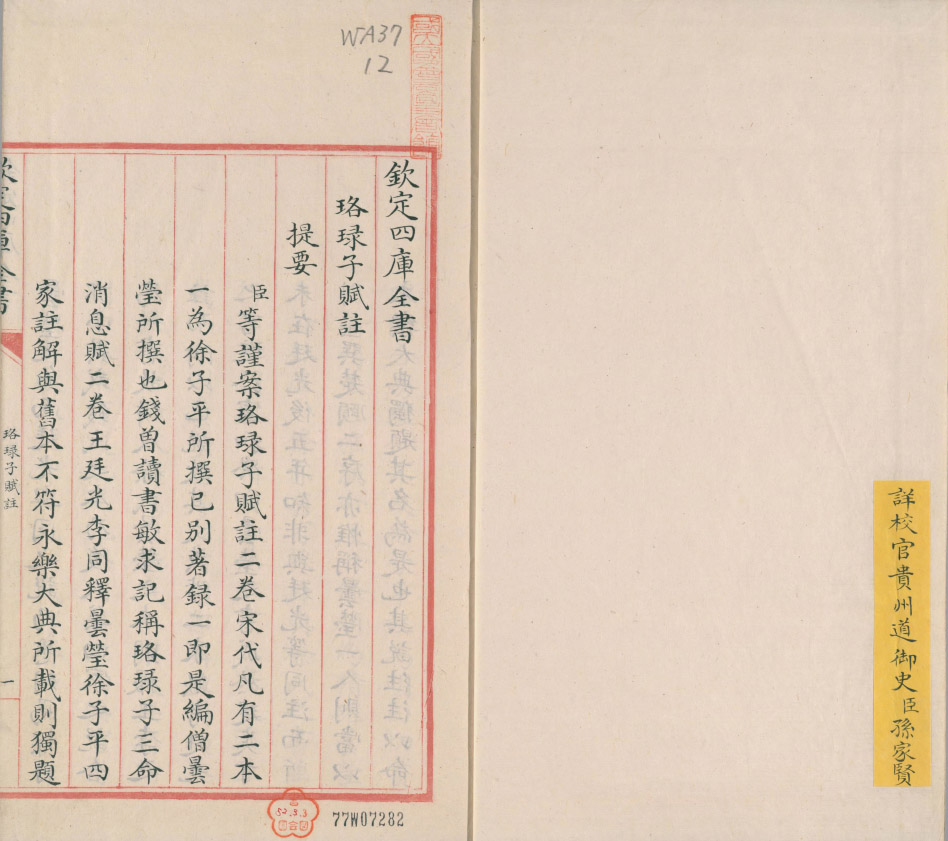 詳校官貴州道御史臣孫家賢
WA37
12
欽定四庫全書
珞琭子賦註
提要
臣等謹案珞琭子賦註二卷宋代凡有二本
一為徐子平所撰已別著錄一即是編僧曇
瑩所撰也錢曾讀書敏求記稱珞琭子三命
消息賦二卷王廷光李同釋曇瑩徐子平四
家註解與舊本不符永樂大典所載則獨題
欽定四庫全書
珞琭子賦註
一
77W07282